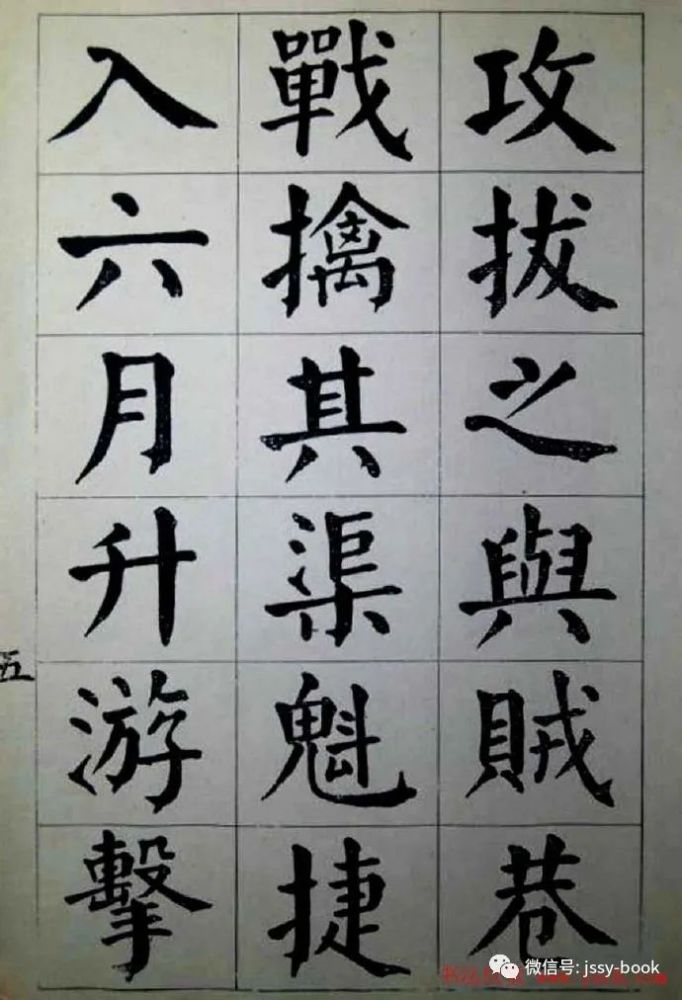 攻拔之與賊巷
戰擒其渠魁捷
入六月升游擊
五
微信号: jssy-book